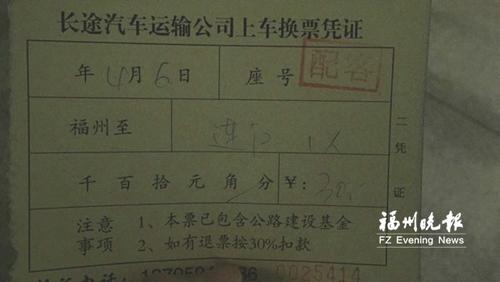 长途汽车运输公司上车换票凭证
年4月6日 座号 配客
福州至 连江 1人
二凭证
千百拾元角分 ¥: 30.-
注意事项
1、本票已包含公路建设基金
2、如有退票按30%扣款
福州晚報
FZ Evening News
0025414